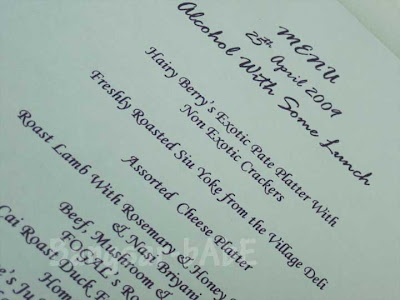 MENU
25th April 2009
Alcohol With Some Lunch
Hairy Berry's Exotic Pate Platter With
Non Exotic Crackers
Freshly Roasted Siu Yoke from the Village Deli
Assorted Cheese Platter
Roast Lamb With Rosemary & Honey
Beef, Mushroom &
& Nasi Briyani
FOCAL's Ro
Cai Roast Duck,
Home
e's Ju